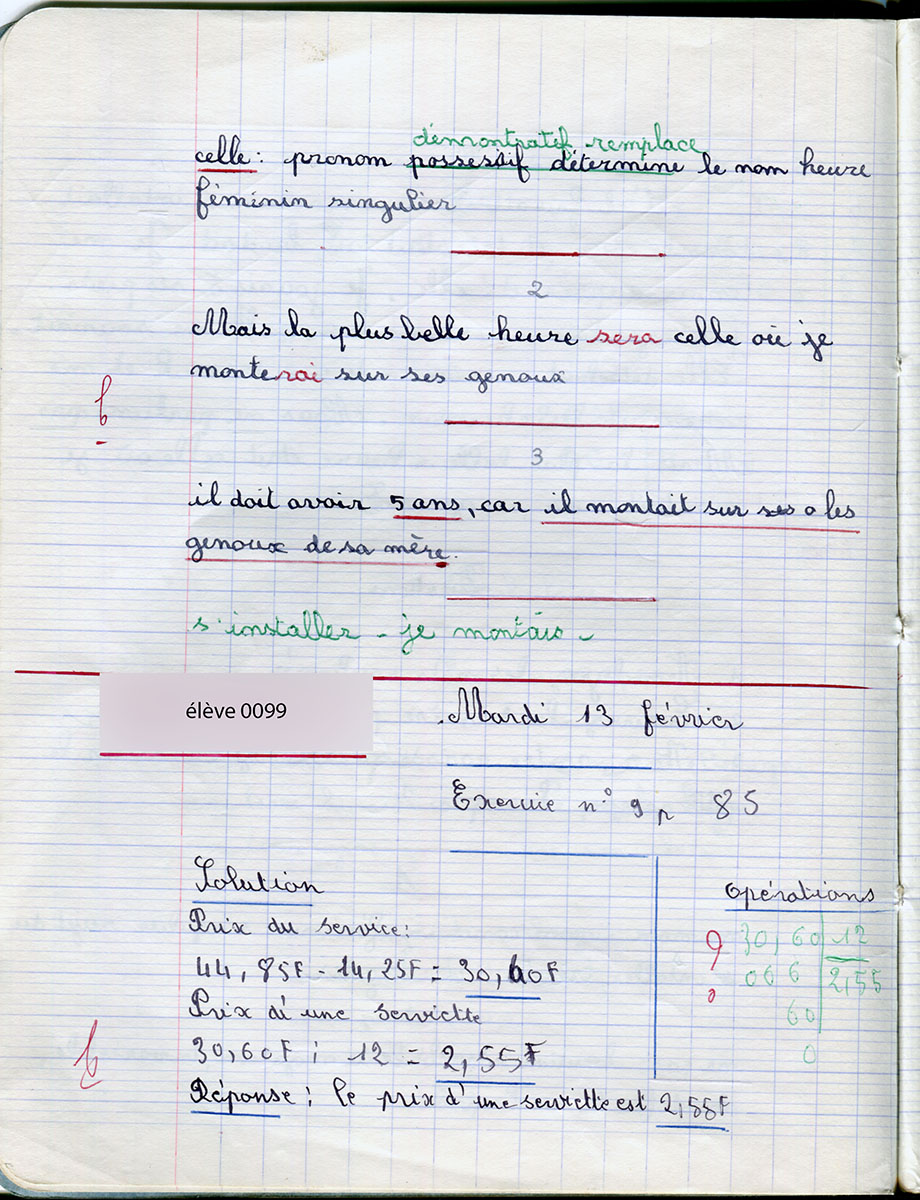 démontratif remplace
celle : pronom possessif détermine le nom heure
féminin singulier
2
Mais la plus belle heure sera celle où je
monterai sur ses genoux
b
3
il doit avoir 5 ans, car il montait sur ses o les
genoux de sa mère.
s'installer - je montais -
élève 0099
Mardi 13 février
Exercie n° 9 p 85
Solution
Opérations
Prix du service :
44,85F - 14,25F = 30,60F
Prix d'une serviette
30,60F : 12 = 2,55F
Réponse : le prix d'une serviette est 2,55F
b
30,60 12
006 2,55
60
0